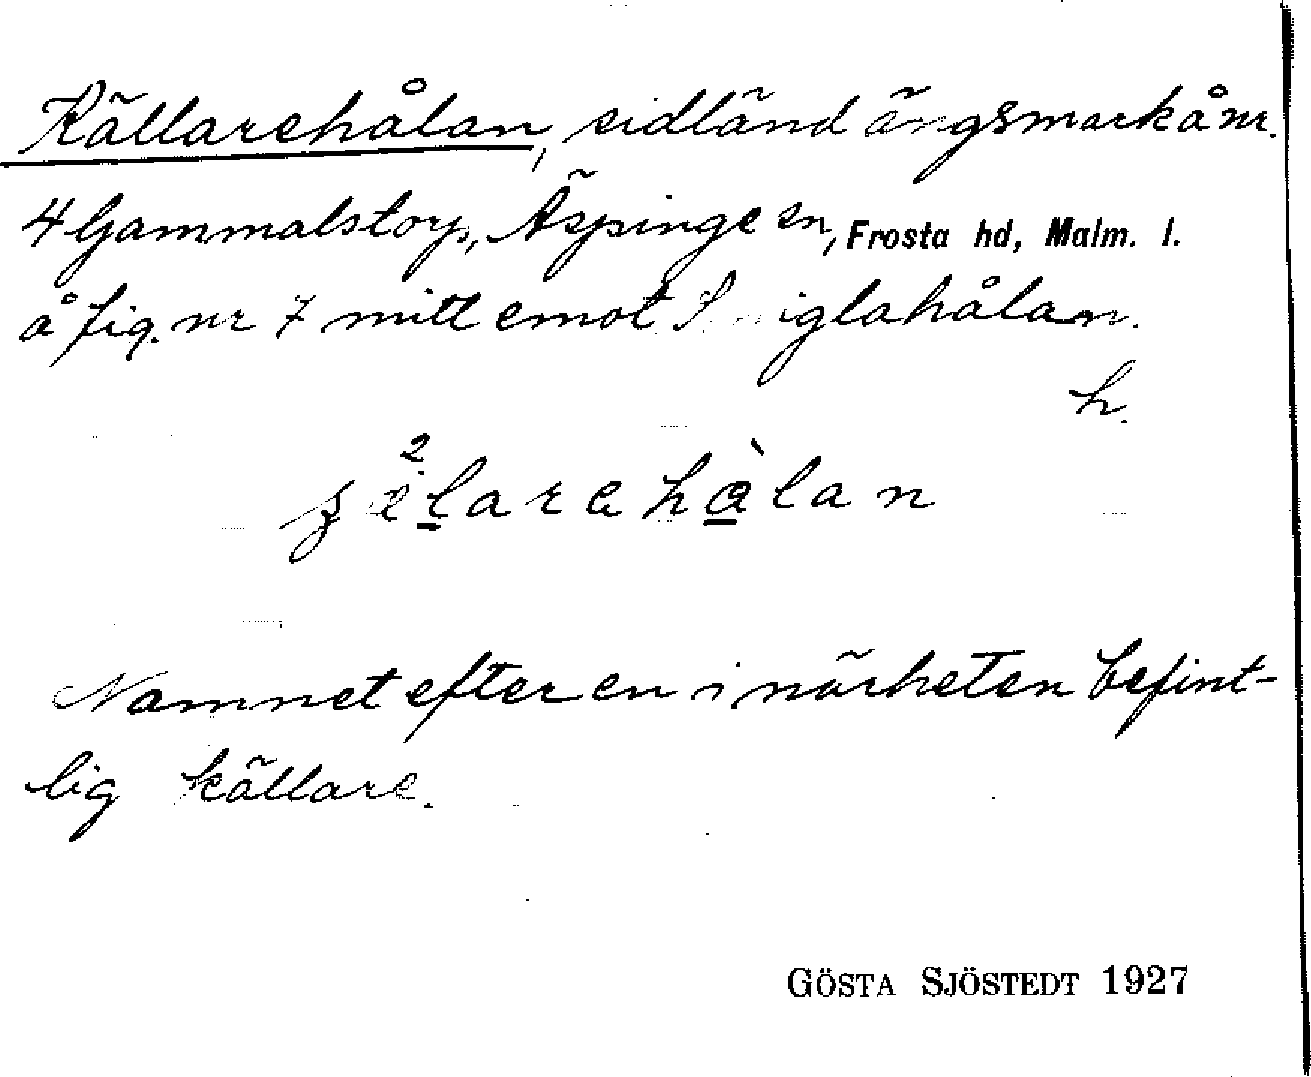 Källarehålan, sidländ ängsmark å nr.
4 Gammalstorp, Äspinge sn, Frosta hd, Malm. l.
å fig. nr 7 mitt emot
h.
Namnet efter en i närheten befint-
lig källare.
GÖSTA SJÖSTEDT 1927